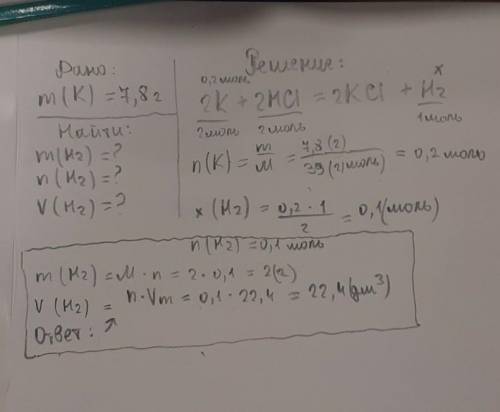 Дано:
m(K) = 7,8 г
Найти:
m(H₂) = ?
n(H₂) = ?
V(H₂) = ?
Решение:
0,2 моль x
2K + 2HCl = 2KCl + H₂
2 моль 2 моль 1 моль
n(K) = m/M = 7,8 (г)/39 (г/моль) = 0,2 моль
x (H₂) = 0,2 · 1/2 = 0,1 (моль)
n(H₂) = 0,1 моль
m(H₂) = M · n = 2 · 0,1 = 2 (г)
V (H₂) = n · Vm = 0,1 · 22,4 = 22,4 (дм³)
Ответ: ↗